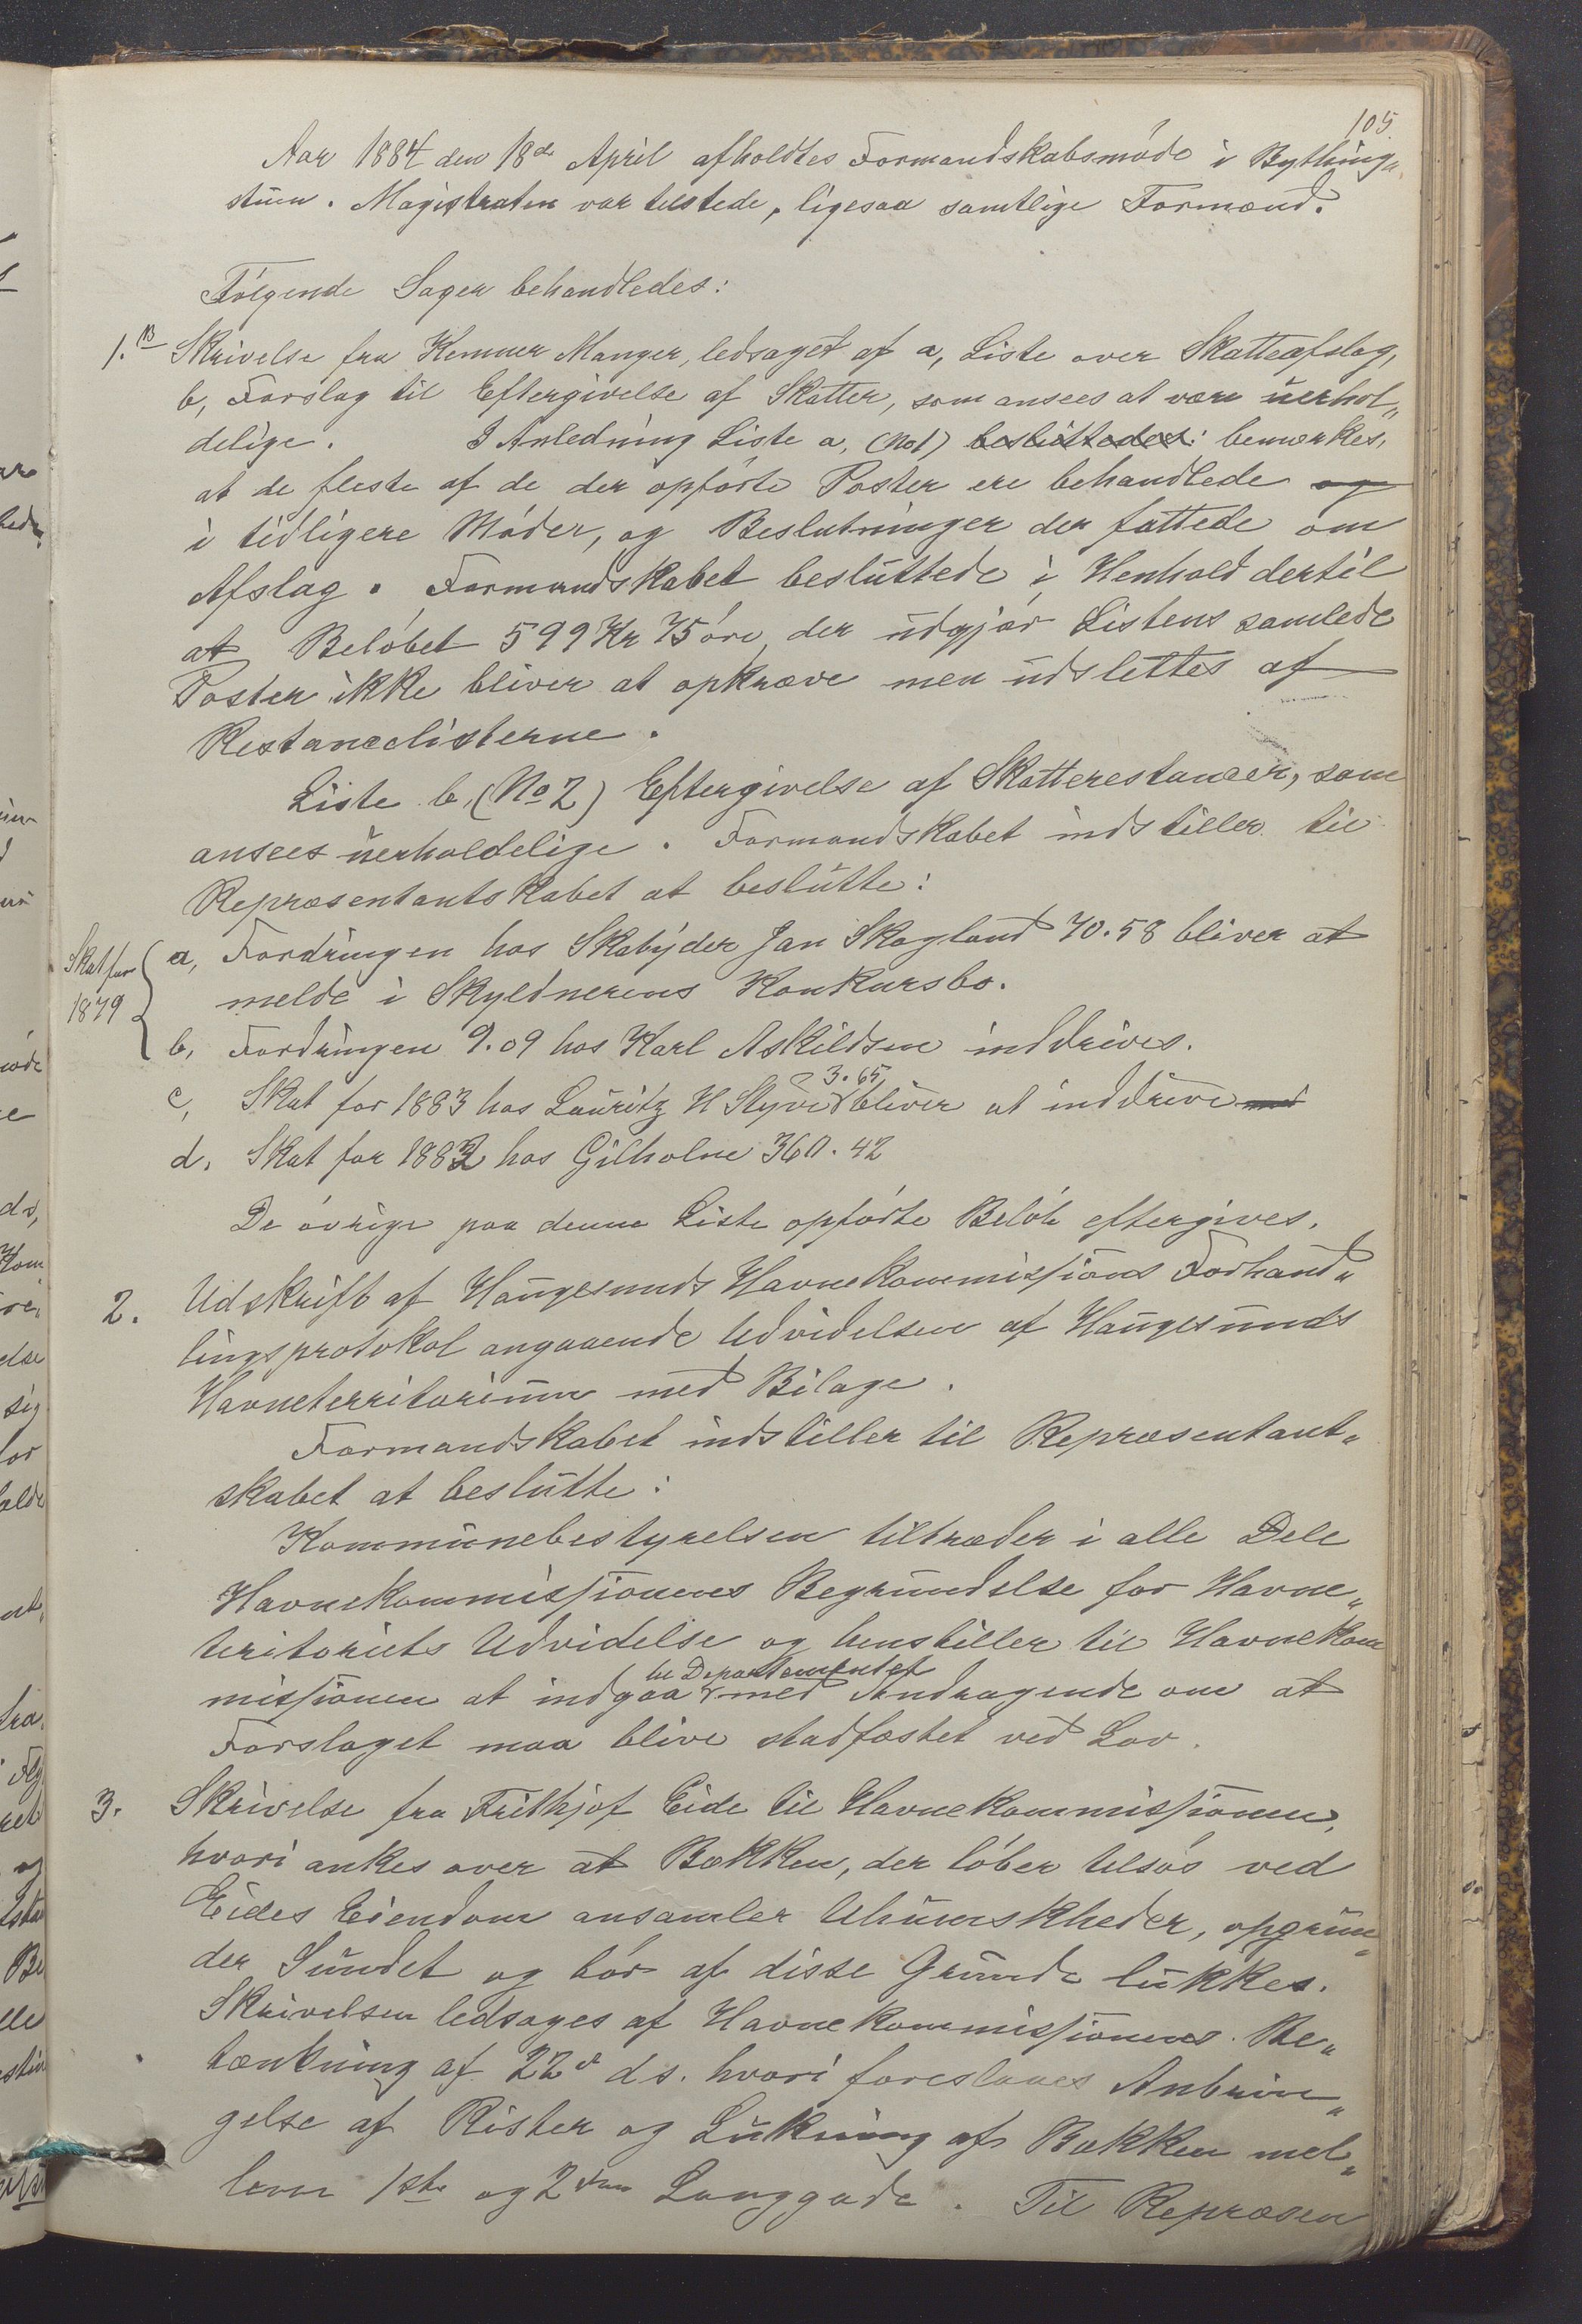 105
Aar 1884 den 18de April afholdtes Formandskabsmöde i Bything„
stuen. Magistraten var tilstede, ligesaa samtlige Formænd.
Fölgende Sager behandledes:
1. Skrivelse fra Kemner Manger, ledsaget af a, Liste over Skatteafslag,
b, Forslag til Eftergivelse af Skatter, som ansees at være uerhol„
delige. I Anledning Liste a, (No1) besluttedes: bemærkes,
at de fleste af de der opförte Poster ere behandlede og
i tidligere Möder, og Beslutninger der fattede om
Afslag. Formandskabet besluttede i Henhold dertil
at Belöbet 599 Kr 75 öre, der udgjör Listens samlede
Poster ikke bliver at opkræve men udslettes af
Restancelisterne.
Liste b, (No 2) Eftergivelse af Skatterestancer, som
ansees uerholdelige. Formandskabet indstiller til
Repræsentantskabet at beslutte:
Skat for
1879
a, Fordringen hos Skabyder Jan Skogland 70.58 bliver at
melde i Skyldnerens Konkursbo.
b, Fordringen 9.09 hos Karl Askildsen inddrives.
3.65
c, Skat for 1883 hos Lauritz H Styve bliver at inddrive med
d. Skat for 1883 hos Gilholm 360.42
De övrige paa denne Liste opförte Belöb eftergives.
2. Udskrift af Haugesunds Havnekommissions Forhand„
lingsprotokol angaaende Udvidelsen af Haugesunds
Havneterritorium med Bilage.
Formandskabet indstiller til Repræsentant„
skabet at beslutte:
Kommunebestyrelsen tiltræder i alle Dele
Havnekommissionens Begrundelse for Havne„
teritoriets Udvidelse og henstiller til Havnekom
til Departementet
missionen at indgaa med Andragende om at
Forslaget maa blive stadfæstet ved Lov.
3. Skrivelse fra Frithjof Eide til Havnekommissionen,
hvori ankes over at Bækken, der löber tilsös ved
Eides Eiendom ansamler Uhumskheder, opgrun„
der Sundet og bör af disse Grunde lukkes.
Skrivelsen ledsages af Havnekommissionens Be„
tænkning af 22d ds. hvori foreslaaes Anbrin„
gelse af Rister og Lukning af Bækken mel„
lem 1ste og 2den Langgade. Til Repræsen